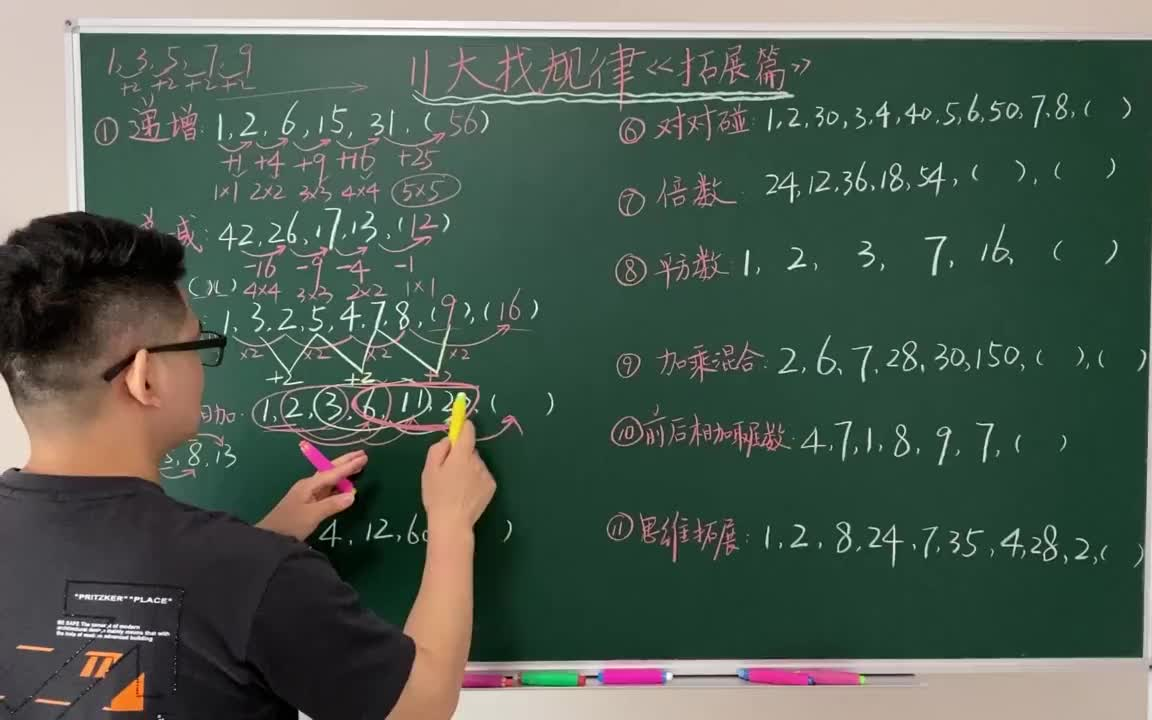 1,3,5,7,9
+2 +2 +2 +2
11大找规律《拓展篇》
① 递增: 1,2,6,15,31,(56)
+1 +4 +9 +16 +25
1×1 2×2 3×3 4×4 5×5
减: 42,26,17,13,(12)
-16 -9 -4 -1
( )( ) 4×4 3×3 2×2 1×1
1,3,2,5,4,7,8,(9),(16)
×2 ×2 ×2 ×2
+2 +2 +2
相加: 1,2,3,6,11,20,( )
8,13
4,12,60 )
⑥ 对对碰: 1,2,30,3,4,40,5,6,50,7,8,( )
⑦ 倍数: 24,12,36,18,54,( ),( )
⑧ 平方数: 1, 2, 3, 7, 16, ( )
⑨ 加乘混合: 2,6,7,28,30,150,( ),( )
⑩ 前后相加 数: 4,7,1,8,9,7,( )
⑪ 思维拓展: 1,2,8,24,7,35,4,28,2,( )
"PRITZKER" "PLACE"